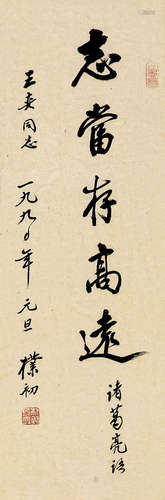 志當存高遠
诸葛亮语
王爽同志
一九九〇年元旦
樸初